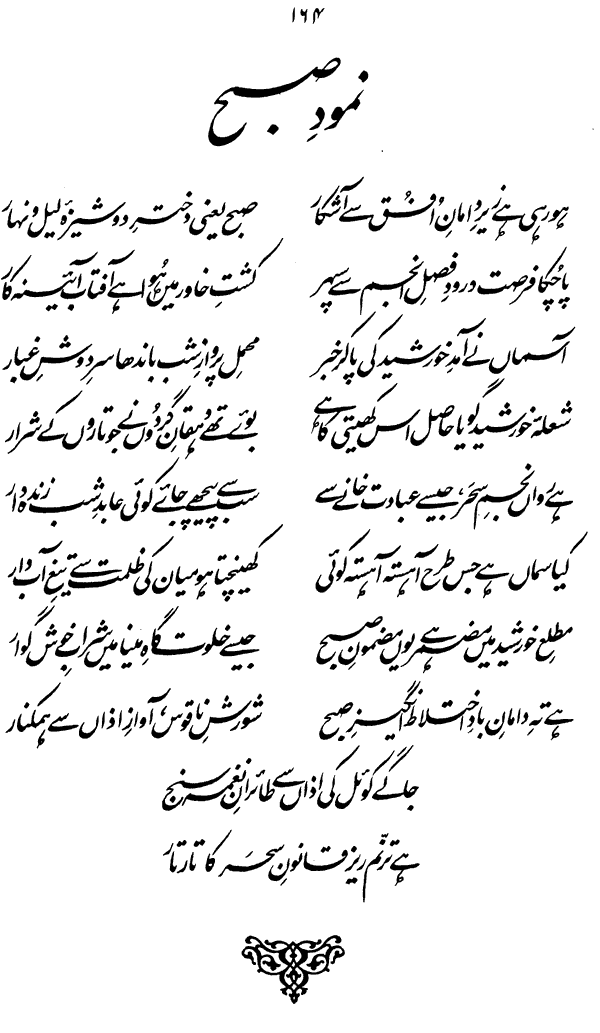 ۱۶۴
نمودِ صبح
ہو رہی ہے زیرِ دامانِ اُفُق سے آشکار صبح یعنی دخترِ دوشیزۂ لیل و نہار
پا چُکا فرصت درودِ فصلِ انجم سے سپہر کشتِ خاور میں ہُوا ہے آفتاب آئینہ کار
آسماں نے آمدِ خورشید کی پا کر خبر محملِ پروازِ شب باندھا سرِ دوشِ غبار
شعلۂ خورشید گویا حاصل اس کھیتی کا ہے بوئے تھے دہقانِ گردُوں نے جو تاروں کے شرار
ہے رواں نجمِ سحَر، جیسے عبادت خانے سے سب سے پیچھے جائے کوئی عابدِ شب زندہ دار
کیا سماں ہے جس طرح آہستہ آہستہ کوئی کھینچتا ہو میان کی ظلمت سے تیغِ آب دار
مطلعِ خورشید میں مضمر ہے یوں مضمونِ صبح جیسے خلوت گاہِ مینا میں شرابِ خوش گوار
ہے تہِ دامانِ بادِ اختلاط انگیزِ صبح شورشِ ناقوس، آوازِ اذاں سے ہمکنار
جاگے کوئل کی اذاں سے طائرانِ نغمہ سنج
ہے ترنّم ریز قانونِ سحَر کا تار تار